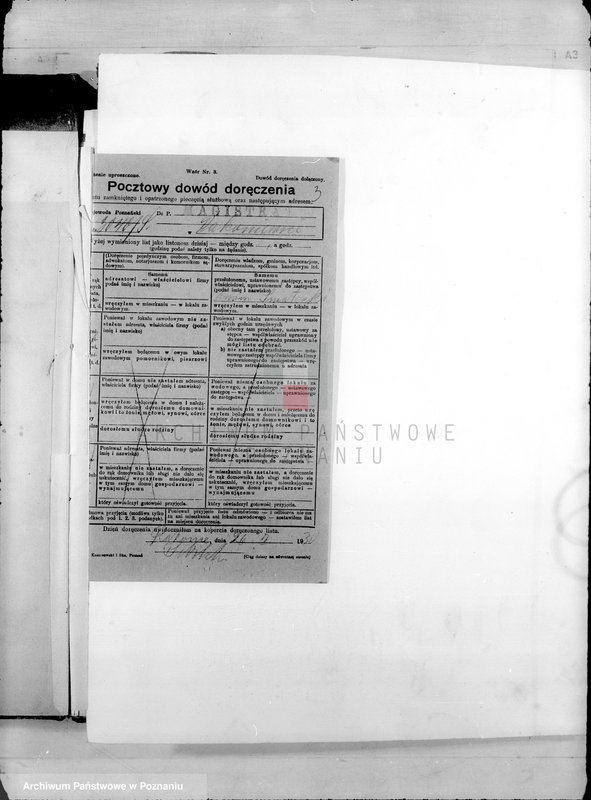 A3
zenie uproszczone. Wzór Nr. 3. Dowód doręczenia dołączony.
Pocztowy dowód doręczenia
3
stu zamkniętego i opatrzonego pieczęcią służbową oraz następującym adresem:
jewoda Poznański Do P. MAGISTRAT
w
yżej wymieniony list jako listonosz dzisiaj — między godz. a godz.
(godzinę podać należy tylko na żądanie).
(Doręczenie pojedyńczym osobom, firmom, adwokatom, notarjuszom i komornikom są-
dowym).
Samemu
adresatowi — właścicielowi firmy
(podać imię i nazwisko)
wręczyłem w mieszkaniu — w lokalu za-
wodowym.
Doręczenie władzom, gminom, korporacjom,
stowarzyszeniom, spółkom handlowym itd.
Samemu
przełożonemu, ustawowemu zastępcy, współ-
właścicielowi, uprawnionemu do zastępstwa
(podać imię i nazwisko)
wręczyłem w mieszkaniu — w lokalu za-
wodowym.
Ponieważ w lokalu zawodowym nie za-
stałem adresata, właściciela firmy (podać
imię i nazwisko)
wręczyłem będącemu w owym lokalu
zawodowym pomocnikowi, pisarzowi
Ponieważ w lokalu zawodowym w czasie
zwykłych godzin urzędowych
a) obecny tam przełożony, ustawowy za
stępca — współwłaściciel uprawniony
do zastępstwa z powodu przeszkód nie
mógł listu odebrać.
b) nie zastałem przełożonego — usta-
wowego zastępcy współwłaściciela firmy
uprawnionego do zastępstwa — wrę-
czyłem zatrudnionemu u adresata
Ponieważ w domu nie zastałem adresata,
właściciela firmy (podać imię i nazwisko)
wręczyłem będącemu w domu i należą-
cemu do rodziny dorosłemu domowni-
kowi i to żonie, mężowi, synowi, córce
dorosłemu słudze rodziny
Ponieważ niema osobnego lokalu za
wodowego, a przełożonego — ustawowego
zastępcy — współwłaściciela — uprawnionego
do zastępstwa
w mieszkaniu nie zastałem, przeto wrę
czyłem będącemu w domu i należącemu do
rodziny dorosłemu domownikowi i to
żonie, mężowi, synowi, córce
dorosłemu słudze rodziny
Ponieważ adresata, właściciela firmy (podać
imię i nazwisko)
w mieszkaniu nie zastałem, a doręczenie
do rąk domownika lub sługi nie dało się
uskutecznić, wręczyłem mieszkającemu
w tym samym domu gospodarzowi —
wynajmującemu
który oświadczył gotowość przyjęcia.
Ponieważ niema osobnego lokalu za-
wodowego, a przełożonego — współwła-
ściciela — uprawnionego do zastępstwa
w mieszkaniu nie zastałem, a doręczenie
do rąk domownika lub sługi nie dało się
uskutecznić, wręczyłem mieszkającemu
w tym samym domu gospodarzowi —
wynajmującemu
który oświadczył gotowość przyjęcia.
Ponieważ przyjęcia listu odmówiono — i odbiorca nie ma
tu ani mieszkania ani lokalu zawodowego — zostawiłem list
na miejscu doręczenia.
Dzień doręczenia uwidoczniłem na kopercie doręczonego listu.
dnia 26 19
Koszewski i Ska, Poznań (Ciąg dalszy na odwrotnej stronie)
ARCHIWUM PAŃSTWOWE
W POZNANIU
Archiwum Państwowe w Poznaniu